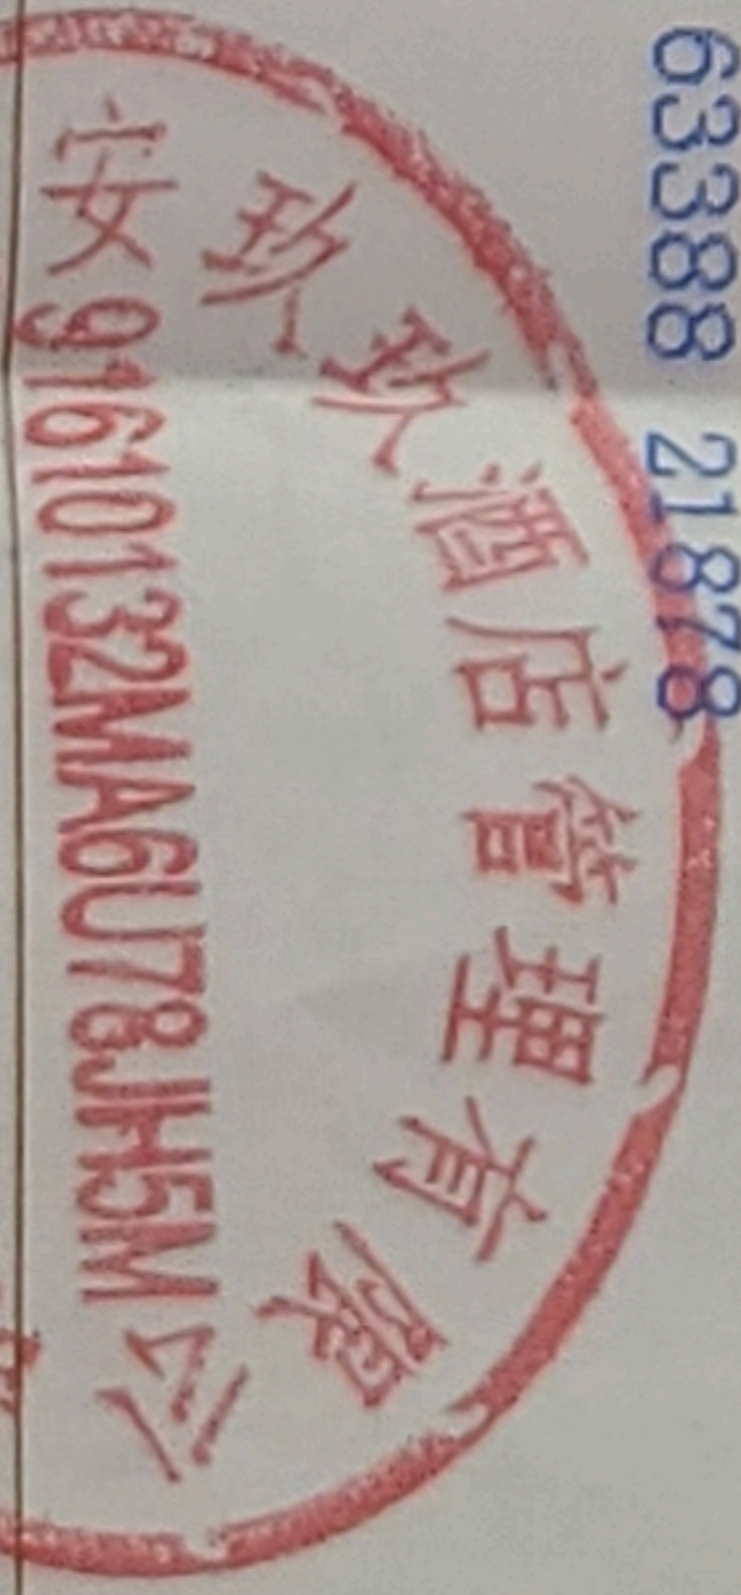 63388 21878
安玖玖酒店管理有限公
91610132MA6U78JH5M